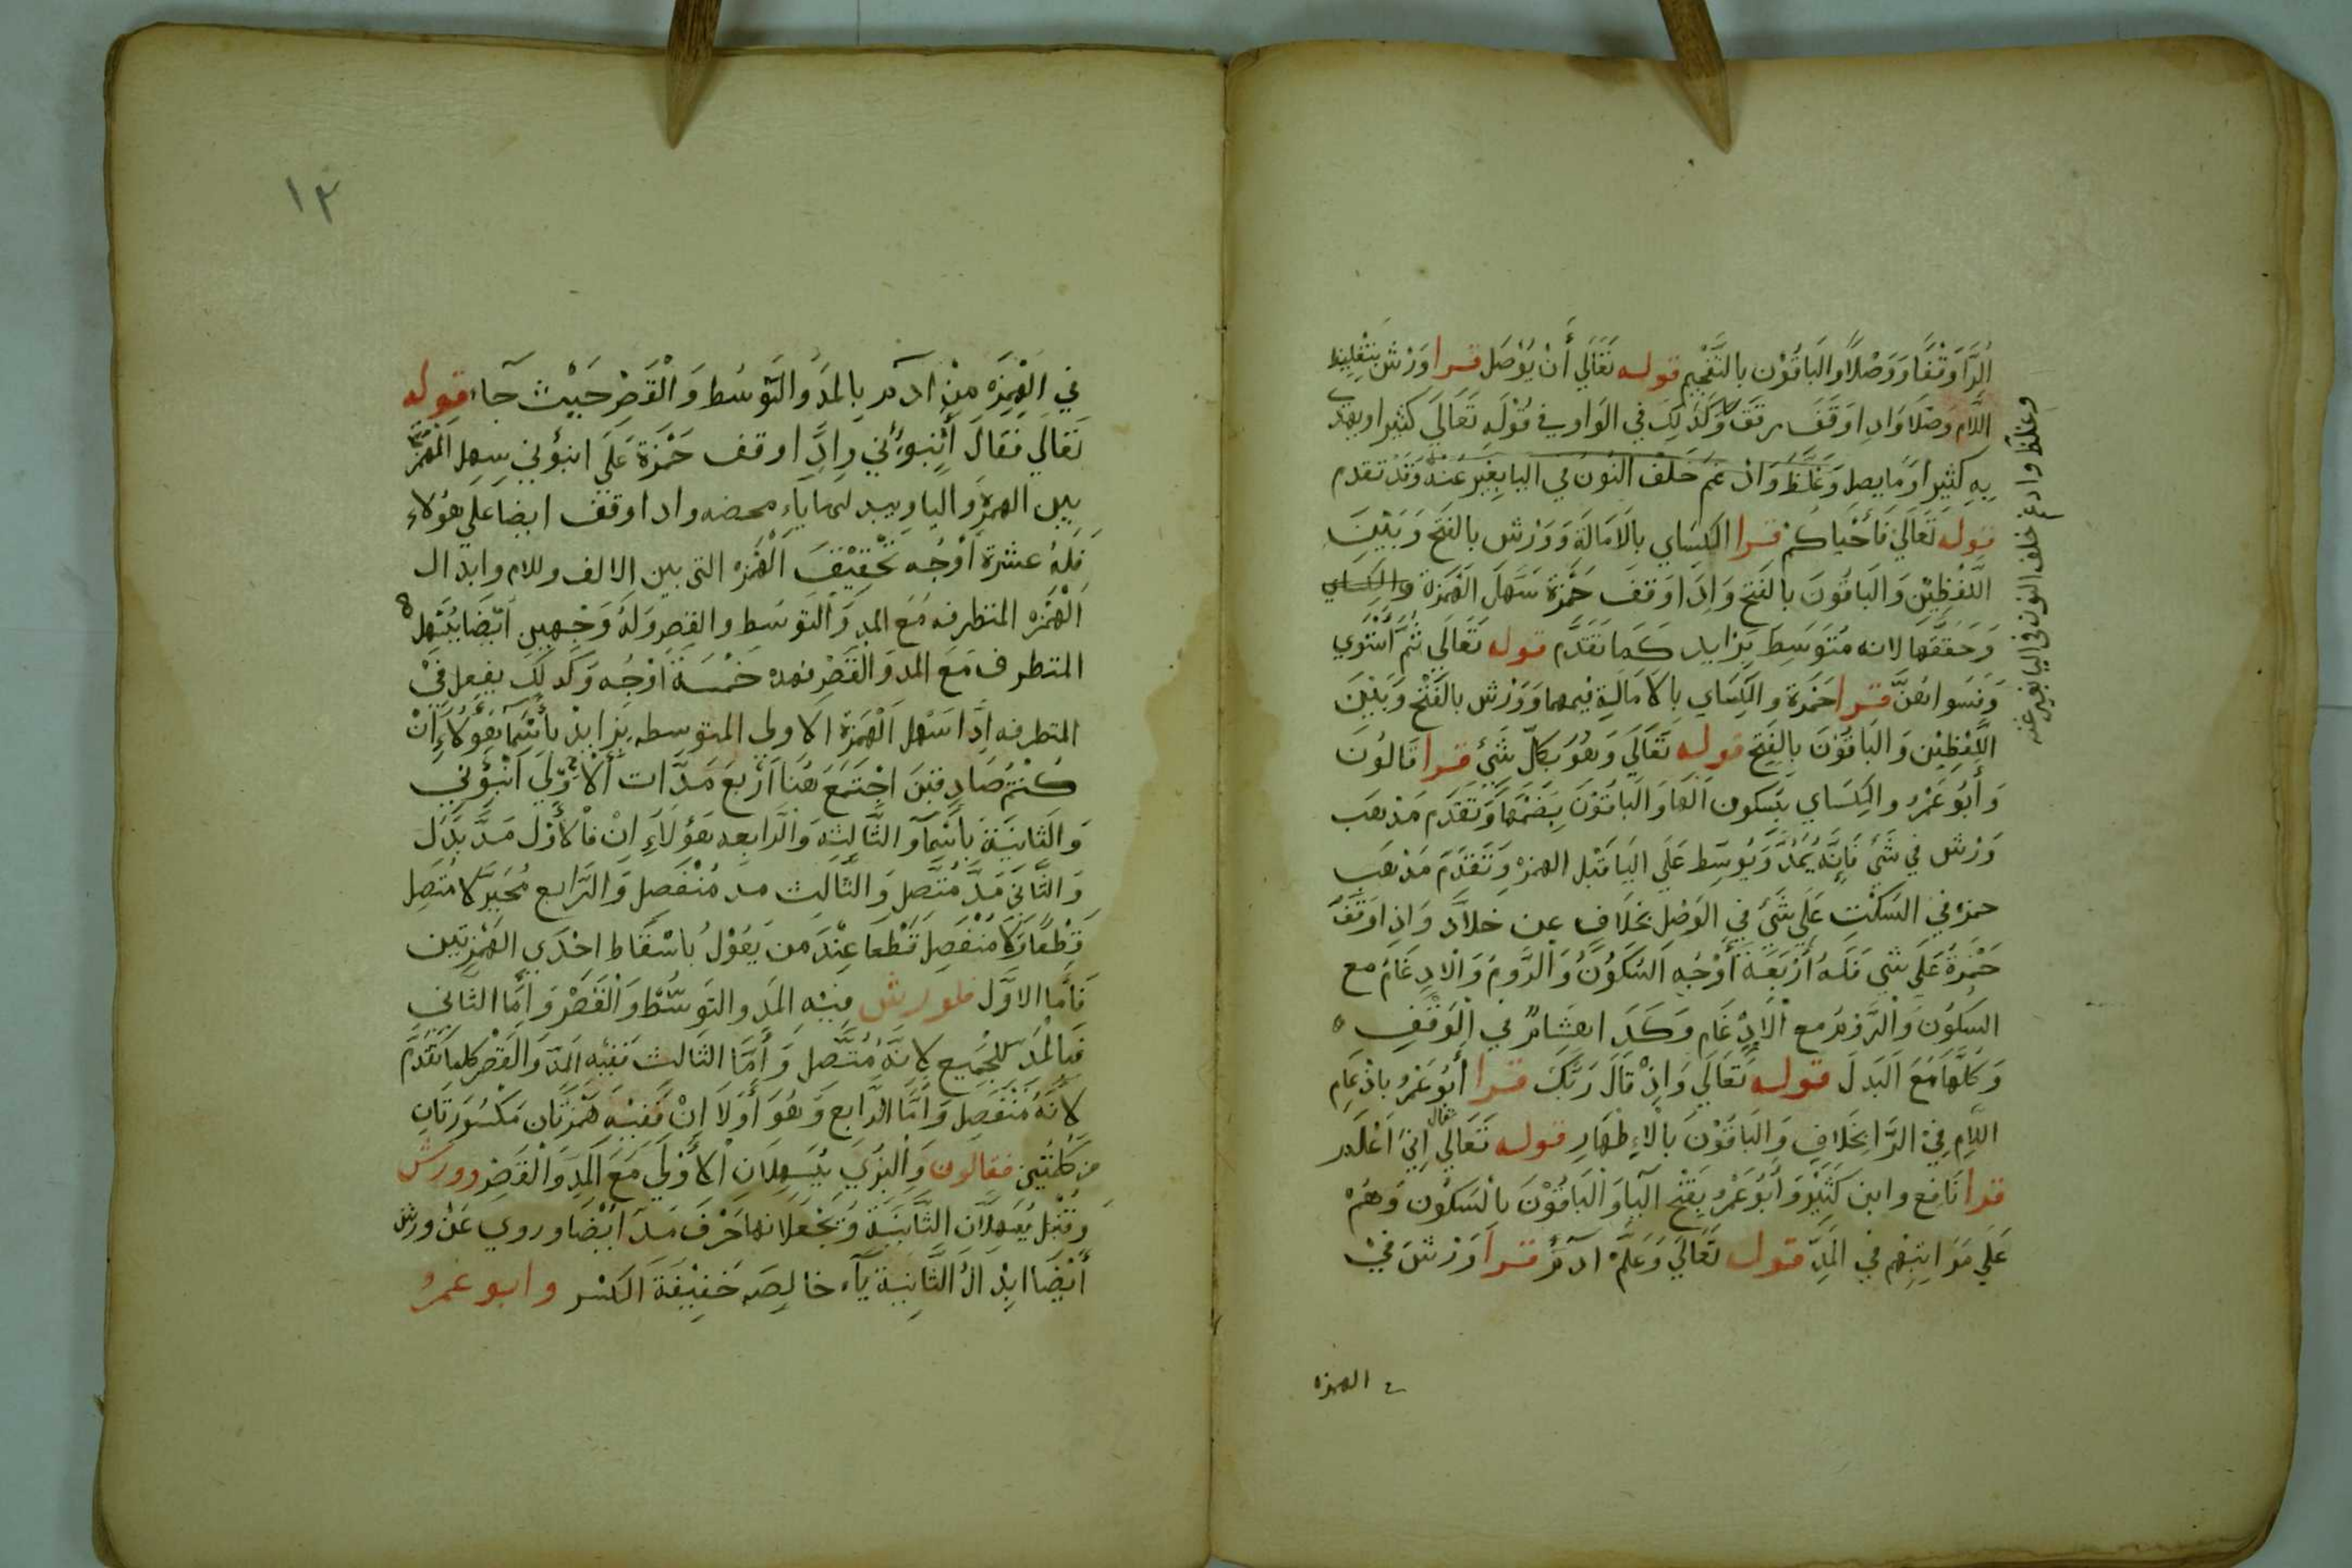 الرَّا وَقْفًا وَوَصْلًا وَالْبَاقُوْن بالتَّفْخِيم قوله تَعَالَي أَنْ يُوْصَل قرا وَرْش بتَغْلِيظ
اللَّام وَصْلا وَاد اوَقَفَ رقق وَكَذَلِكَ في الوَاو في قَوْلِهِ تَعَالَى كَثِيرا ويهدي
بِهِ كَثِيرا وَمَا يضل وَغَلَّظَ وَادْغَمَ خَلَفْ النُون في اليا بِغَيْر غُنَّة وَقَدْ تقدم
قوله تَعَالَي فَأَحْيَاكُمْ قرا الكِسَاي بالامَالَة وَوَرْش بالفَتْح وَبَيْنَ
اللَّفْظَيْن وَالْبَاقُونَ بالفَتْح وَاد اوَقَفَ حَمْزَة سَهَّلَ الهَمْزَة والكساي
وَحَقَّقَهَا لانه مُتَوَسِط بِزَايد كَما تَقَدَّم قوله تَعَالَي ثُمَّ اسْتَوَي
وَفَسَوا هُنَّ قرا حَمْزَة والكِسَاي بالامَالَة فيهما وَوَرْش بالفَتْح وَبَيْنَ
اللَّفْظِيْن وَالبَاقُوْنَ بِالفَتْح قوله تَعَالَي وَهُوَ بِكُلّ شَيْ قرا قَالُونَ
وَأَبُو عَمْرُ والكِسَاي بِسَكون الهَا وَالبَاقُوْنَ بِضَمّهَا وَتَقَدَم مَذهَب
وَرْش في شَيْ فَإِنَّهُ يَمُدَّ وَيُوسِّط عَلَي اليَا قَبْل الهمزه وَتَقَدَّمَ مَذهَب
حمزه في السَكْتِ عَلَي شَيْ في الوَصْل بخلَاف عن خلَّاد وَاذ اوَقَفَ
حَمْزَةُ عَلَي شي فَلَهُ أَرْبَعَة أَوْجُه السَكُوْنُ وَالرَّومُ وَالْادِغَامُ مع
السكُوْن وَالْرَّوْمُ مع الْادْغَام وَكَذَ اهِشَامٌ في الْوَقْفِ ه
وَكُلَّهَا مَعَ البَدَل قوله تَعَالَي وَاِذْ قَالَ رَبُّكَ قرا أَبُو عَمْرُ بادْغَام
اللَّام فِيْ الرَّا بخلَافٍ وَالبَاقُوْنَ بالْاِظْهَار قوله تَعَالَي قال اِنِّيَ اَعْلَم
قرا نَافِع وابن كَثِيْر وَأَبُو عَمْرُ بِفَتْح اليَا وَالبَاقُوْنَ بالسَكُوْن وَهُمْ
عَلَي مَرَاتِبِهِم في المَدِّ قوله تَعَالَي وَعَلَّمَ آدَمَ قرا وَرْش فيْ
وغلظ وادغم خلف النون في اليا بغير غنه
الهمزه
١٣
في الهَمْزَه مِنْ ادَم بِالمَدّ وَالتَوَسُط وَالْقَصْر حَيْثُ جَاء قوله
تَعَالَي فَقَالَ أَنْبِؤُنِي وَاِذَ اوقف حَمْزَة عَلَى انبؤُني سهل الهمزة
بين الهمزة وَاليا ويبدلها ياء محضه واد اوقف ايضا علي هؤلاءِ
فَلَهُ عشرة اَوْجُه تَحْقِيْقَ الهَمْزه التي بين الالف وللام وابدال
الْهَمْزه المتطرفه مَعَ المد وَالتوسَط والقصر وَلَهُ وَجْهين اَيْضًا يُسَهِل
المتطرف مَعَ المد وَالْقَصْر فهده خَمْسَة اَوْجُه وَكَذلِكَ يفعل فيْ
المتطرفه اِذَ اسَهل الهَمْزَة الاولى المتوسطه بِزَايدْ بأَسْمَآ هَؤُلَاءِ اَنْ
كُنْتُم صَادِقينَ اجْتَمَعَ هُنَا اَرْبَع مَدَّات أَلْاوّلَي اَنْبِؤُني
وَالثَانِيَة بأَسْمَآ وَالثَّالِثَه وَالرَابعه هَؤُلَآءِ اِنْ فالْاَوَّل مَدَّ بَدَل
وَالثَّانَي مَدَّ مُتَّصل وَالثَّالث مد مُنْفَصِل وَالرَّابع مُخَيَّر لا مُتَصِل
قَطْعًا وَلا مُنْفَصِل قَطْعَا عِنْدَ مَن يَقُوْلُ بِاسْقَاط احْدَي الهَمْزتين
فَأَمَّا الاوَّل فلورش فِيْه المَدَ والتَوَسُّطْ وَالْقَصْرْ وَأَمَّا الثَّاني
فَبالْمَدّ للجَمِيع لِانَّهُ مُتَّصل وَأَمَّا الثَالث فَفِيْه المَدّ وَالقَصْر كلما تَقَدَّم
لِانَّهُ مُنْفَصِل وَأَمَّا الرَّابع وَهُوَ أَوَلَا اِنْ فَفِيْهِ هَمْزَتَان مَكْسُورَتَان
من كَلمَتين فقالون وَالْبَزِي يُسَهِلَانِ الْأُوْلَي مَعَ المَدّ وَالْقَصْر وورش
وَقُنْبُل يُسَهِلَان الثَّانيَة وَيَجْعَلانها حَرْفَ مَدّ اَيْضًا وروي عَنْ ورش
أَيْضًا ابْدَالُ الثَّانِيَة يَآء خَالِصَه خَفِيْفَة الكَسْر وابو عَمرُ